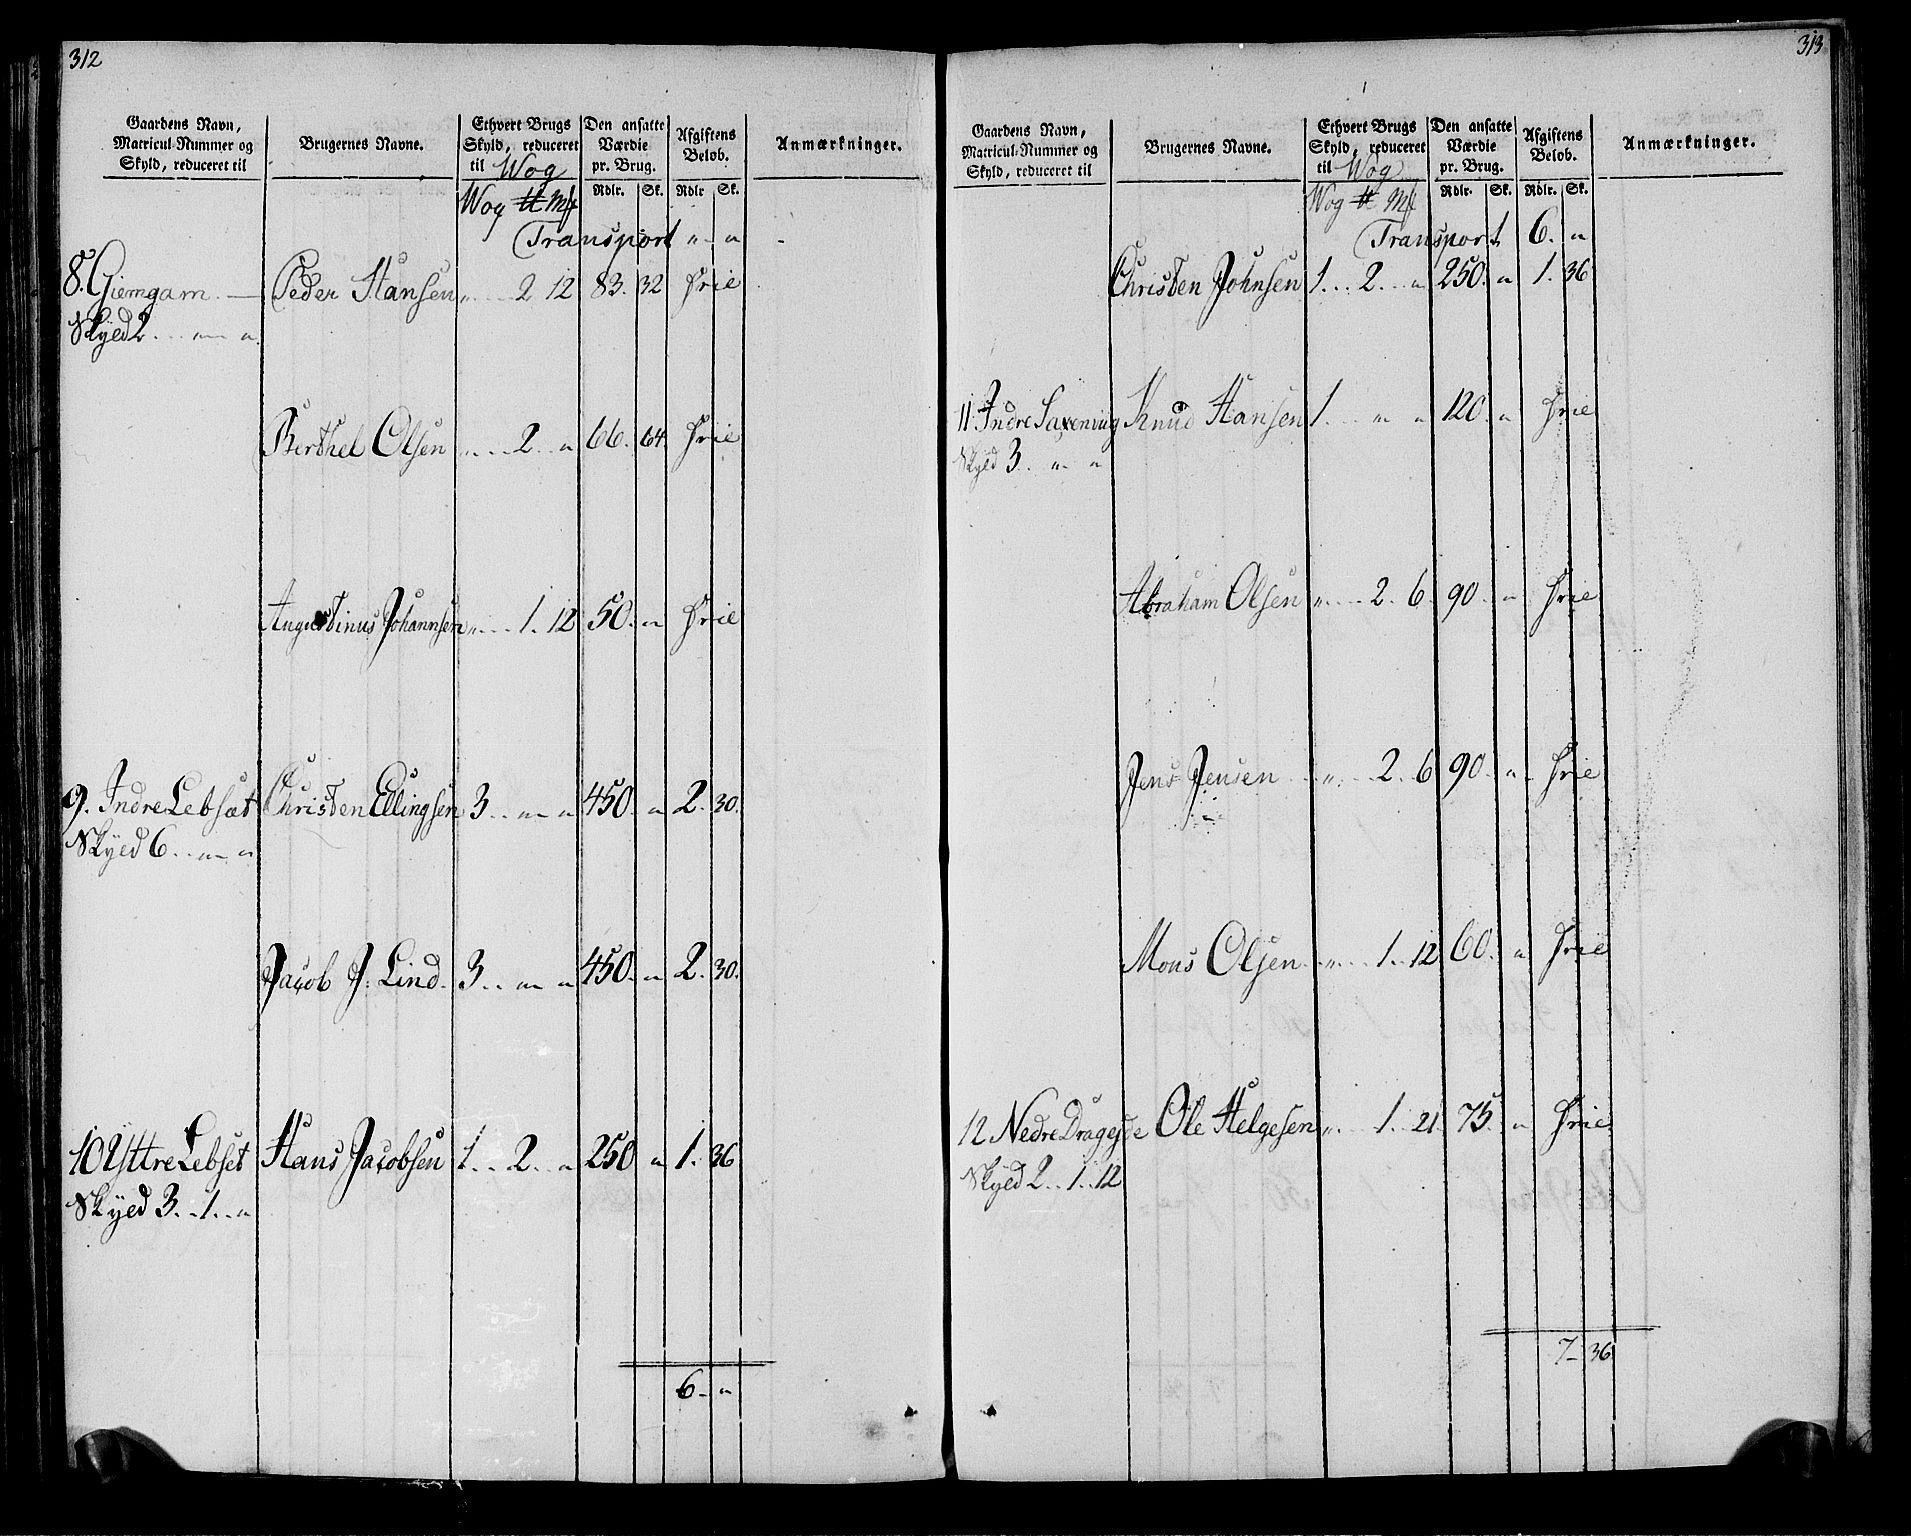 312
Gaardens Navn, Matricul-Nummer og Skyld, reduceret til | Brugernes Navne. | Ethvert Brugs Skyld, reduceret til Wog | Den ansatte Værdie pr. Brug. | Afgiftens Beløb. | Anmærkninger.
Wog ℔ Mk | Rdlr. Sk. | Rdlr Sk.
Transport " "
8. Giemgam. Peder Hansen " 2 12 83. 32 Frie
Skyld 2 " "
Berthel Olsen " 2 " 66. 64. Frie
Augustinus Johannsen " 1. 12 50. " Frie
9. Indre Lebsæt Christen Ellingsen 3 " " 450. " 2. 30.
Skyld 6 " "
Jacob J: Lind. 3 " " 450. " 2. 30.
10 Yttre Lebset Hans Jacobsen 1 2 " 250 " 1. 36
Skyld 3 1 "
6 "
313
Gaardens Navn, Matricul-Nummer og Skyld, reduceret til | Brugernes Navne. | Ethvert Brugs Skyld, reduceret til Wog | Den ansatte Værdie pr. Brug. | Afgiftens Beløb. | Anmærkninger.
Wog ℔ Mk | Rdlr. Sk. | Rdlr. Sk.
Transport 6. "
Christen Johnsen 1 2 " 250. " 1. 36
11. Indre Saxenvig Knud Hansen 1 " " 120. " Frie
Skyld 3. " "
Abraham Olsen " 2. 6. 90. " Frie
Jens Jensen " 2. 6 90. " Frie
Mons Olsen " 1. 12 60. " Frie
12 Nedre Drageyde Ole Helgesen " 1. 21. 75. " Frie
Skyld 2 1 12
7 36